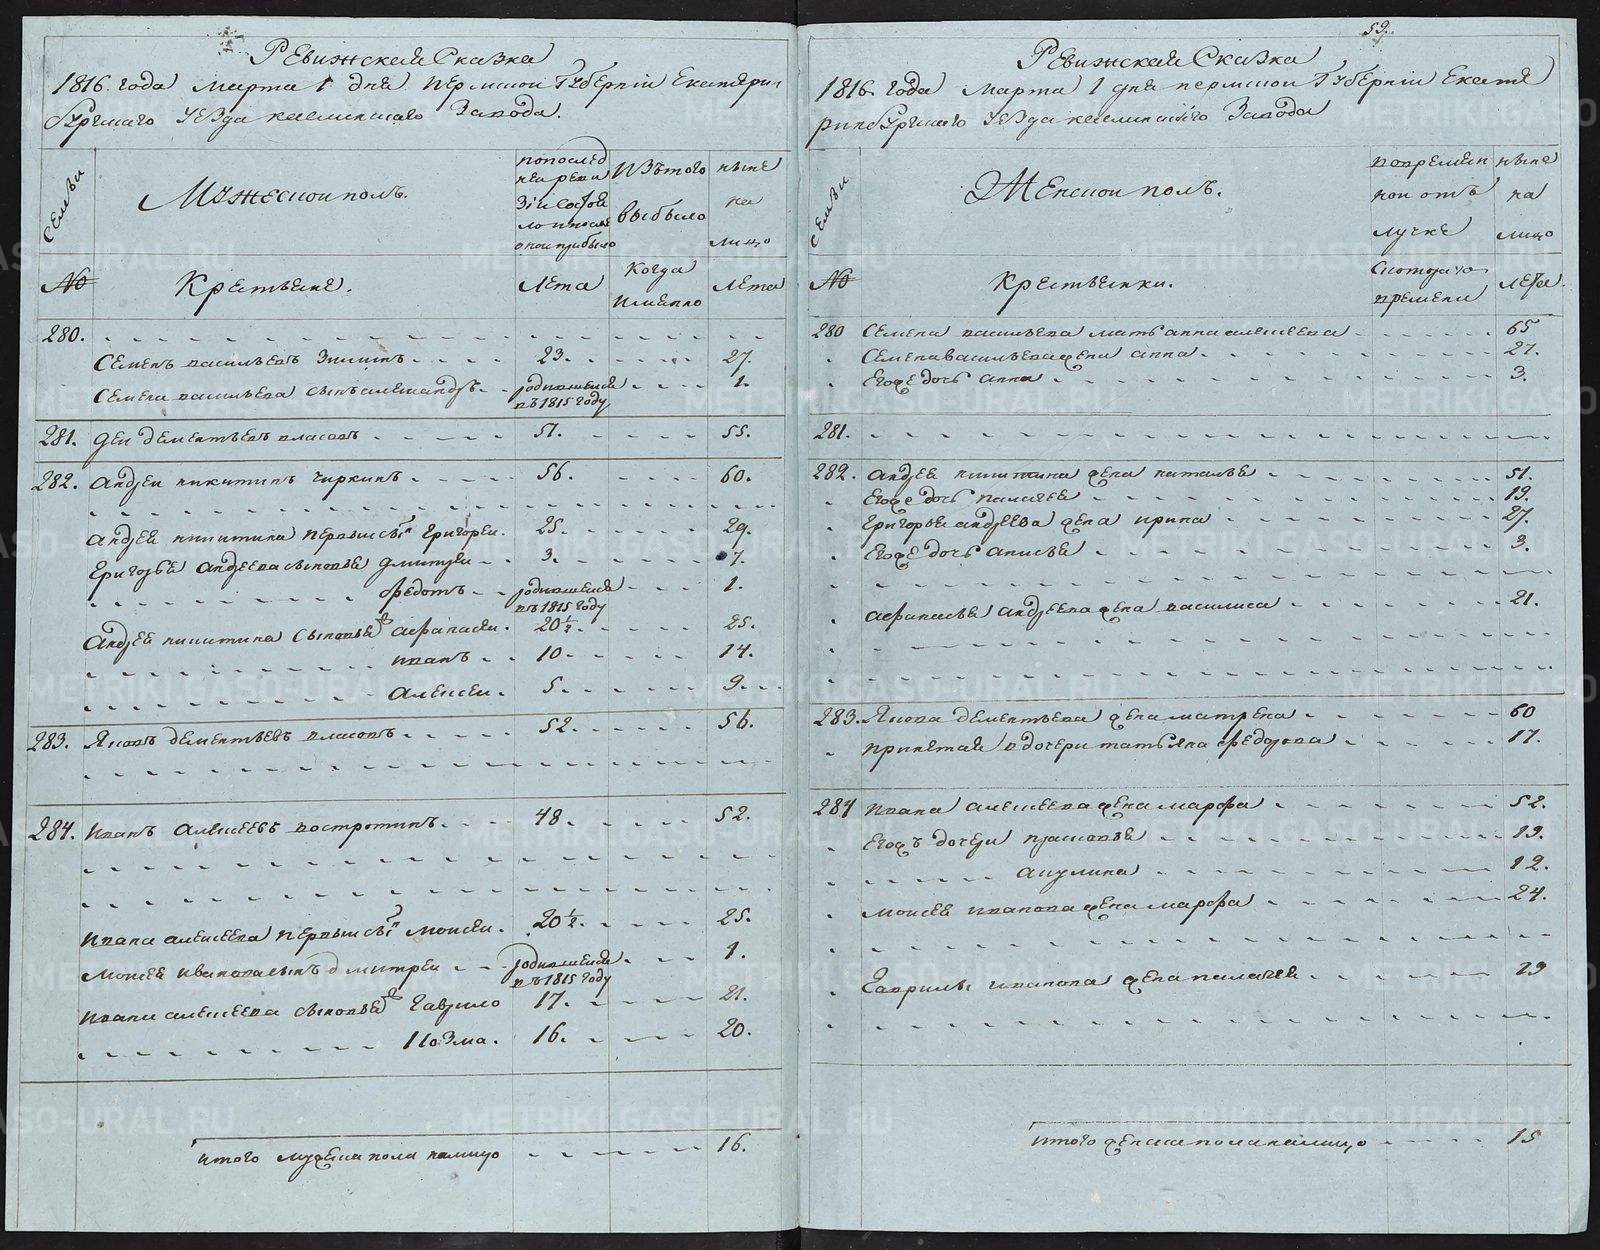 Ревижская Сказка
1816. года Марта 1 дня Пермской Губерніи Екатерин
бургскаго Уезда каслинскаго Завода.
Семьи
Мужеской полъ.
по послед
ней реви
зіи состоя
ло и после
оной прибыло
Изъ того
выбыло
ныне
на
лицо
№
Крестьяне.
Лета
Когда
имянно
Лета
280.
Семенъ васильевъ Зиминъ 23. 27.
Семена васильева сынъ александръ родившейся въ 1815 году 1.
281. дей дементьевъ власовъ 51. 55.
282. Андрей никитинъ чиркинъ 56. 60.
Андрея никитина первый сынъ григорей. 25. 29.
Григорья Андреева сыновья дмитрей 3. 7.
федотъ родившейся въ 1815 году 1.
Андрея никитина сыновья афанасей. 20½. 25.
иванъ 10. 14.
Алексей. 5. 9.
283. Яковъ дементьевъ власовъ 52. 56.
284. Иванъ Алексеевъ востротинъ. 48. 52.
Ивана алексеева первый сынъ Моисей. 20½. 25.
Моисея иванова сынъ дмитрей родившейся въ 1815 году 1.
Ивана алексеева сыновья Гаврило 17. 21.
Козма. 16. 20.
итого мужеска пола налицо 16.
59.
Ревижская Сказка
1816. года Марта 1 дня пермской Губерніи Екате
ринбургскаго Уезда каслинскаго Завода
Семьи
Женской полъ.
во времен
ной отъ
лучке
ныне
на
лицо
№
Крестьянки.
Скотораго
времени
лета.
280 Семена васильева мать анна алексеева 65
Семена васильева жена анна. 27.
Его же дочь анна 3.
281.
282. Андрея никитина жена наталья 51.
Его же дочь палагея 19.
Григорья андреева жена ирина 27.
Его же дочь анисья 3.
Афанасья Андреева жена василиса 21.
283. Якова дементьева жена матрена 60
принятая в дочери татьяна федорова 17.
284 Ивана алексеева жена марфа 52.
Его жъ дочери прасковья 19.
акулина 12.
Моисея иванова жена марфа 24.
Гаврилы иванова жена палагея 19
итого женска пола налицо 15
METRIKI.GASO-URAL.RU